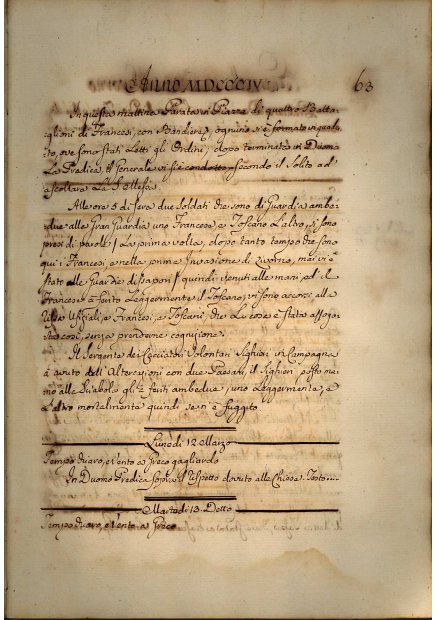 Anno MDCCCIV
63
In questa mattina Parata in Piazza di quattro Batta-
glioni di Francesi, con Bandiera, ognuno si è formato in quadra-
to, ove sono stati Letti gli Ordini, dopo terminata in Duomo
La Predica, Il Generale vi si è condotto secondo il solito ad
ascoltare La S. Messa.
Alle ore 5 di sera due Soldati che sono di Guardia ambe-
due alla Gran Guardia uno Francese, e Toscano L'altro, si sono
presi di parole / La prima volta, dopo tanto tempo che sono
qui i Francesi e nella prima Invasione di mai vi è
stato alle Guardie dissapori / quindi venuti alle mani, ed il
Francese à ferito Leggermente il Toscano, vi sono accorsi alla
Ufiziali, e Francesi, e Toscani, che La cosa è stata affoga-
ta così, senza prenderne cognizione.
Il Sergente de Cacciatori Volontari Sighieri in Campagna
à avuto dell'Altercazioni con due Paesani, il Sighieri posto ma-
no alla Sciabola gli à feriti ambedue, uno Leggermente, e
L'altro mortalmente quindi se n'è fuggito
Lunedi 12 Marzo
Tempo Chiaro, e Vento a Greco gagliardo
In Duomo Predica sopra il Rispetto dovuto alle Chiese
Martedi 13. Detto
Tempo Chiaro, e Vento a Greco